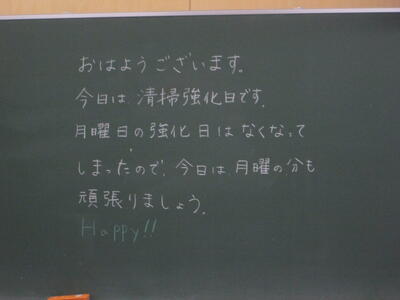 おはようございます。
今日は、清掃強化日です。
月曜日の強化日はなくなって
しまったので、今日は、月曜の分も
頑張りましょう。
Happy!!